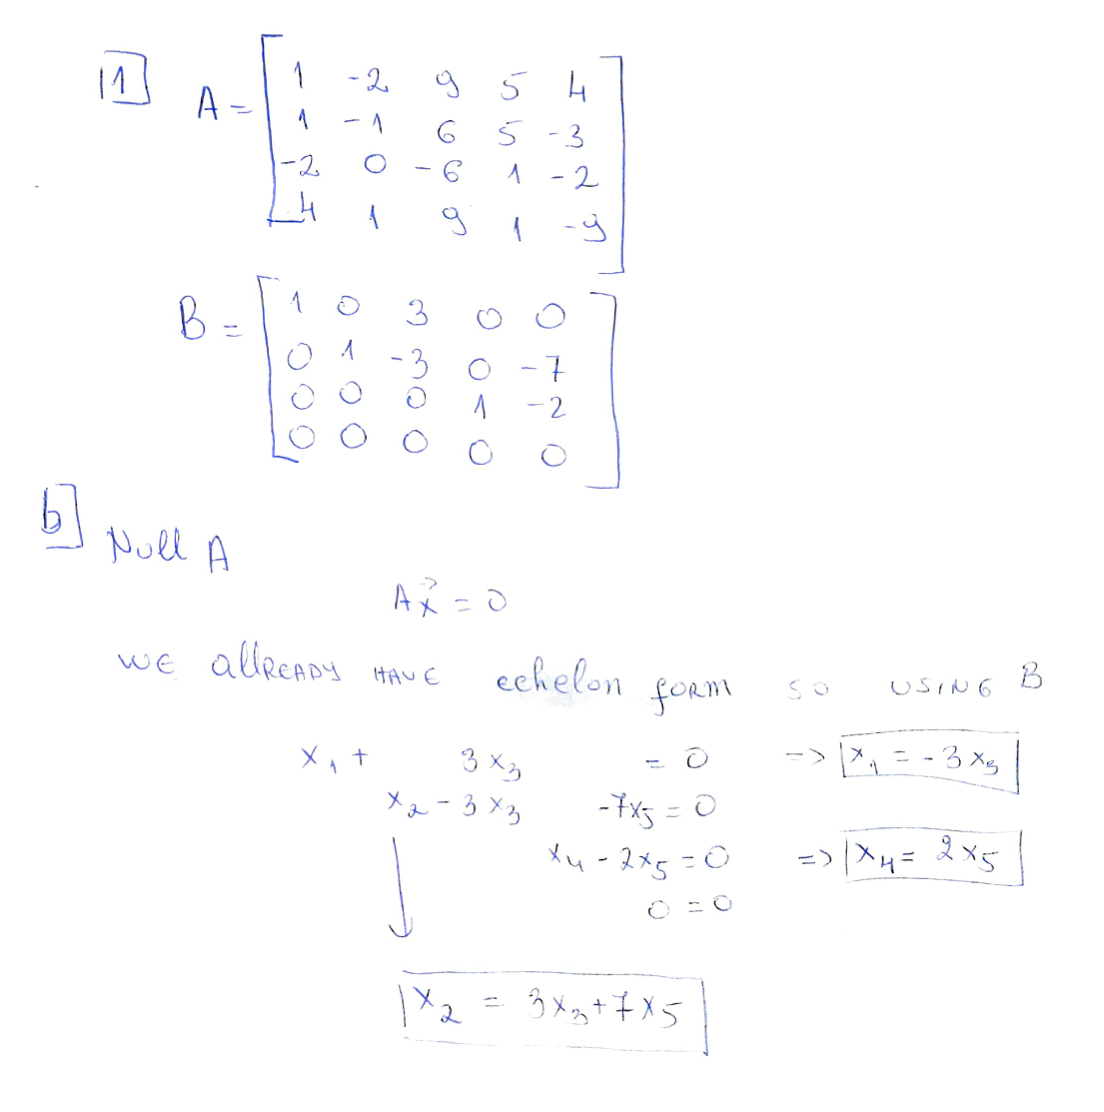 1
A = [ 1 -2 9 5 4
1 -1 6 5 -3
-2 0 -6 1 -2
4 1 9 1 -9 ]
B = [ 1 0 3 0 0
0 1 -3 0 -7
0 0 0 1 -2
0 0 0 0 0 ]
b
Null A
Ax⃗ = 0
WE allREADY HAVE echelon form so USING B
x₁ + 3x₃ = 0 => x₁ = -3x₃
x₂ - 3x₃ -7x₅ = 0
x₄ - 2x₅ = 0 => x₄ = 2x₅
0 = 0
↓
x₂ = 3x₃ + 7x₅